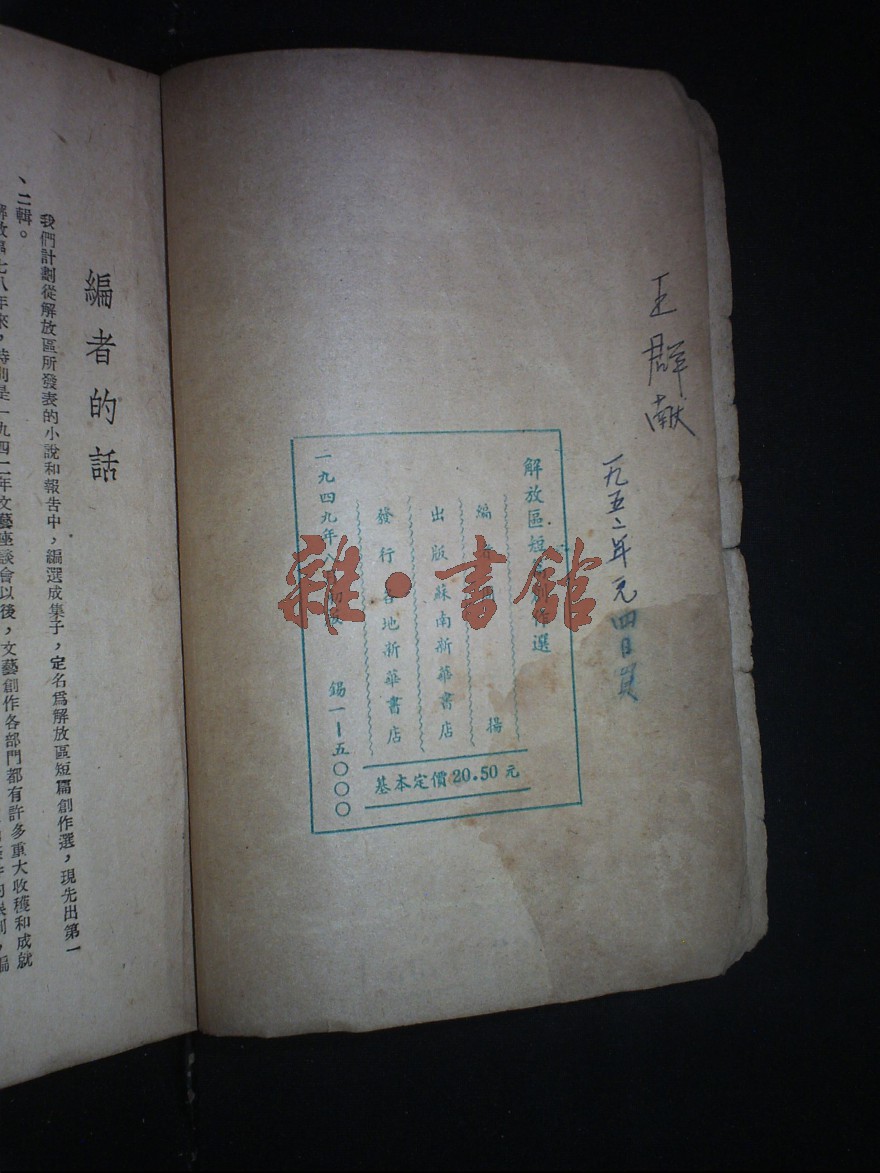 王群献
一九五二年元四日買
解放區短篇創作選
編者 周 揚
出版 蘇南新華書店
發行 各地新華書店
一九四九年八月初版 錫一—五〇〇〇
基本定價 20.50 元
雜·書館
編者的話
我們計劃從解放區所發表的小說和報告中，編選成集子，定名爲解放區短篇創作選，現先出第一
、二輯。
解放區七八年來，特別是一九四二年文藝座談會以後，文藝創作各部門都有許多重大收穫和成就